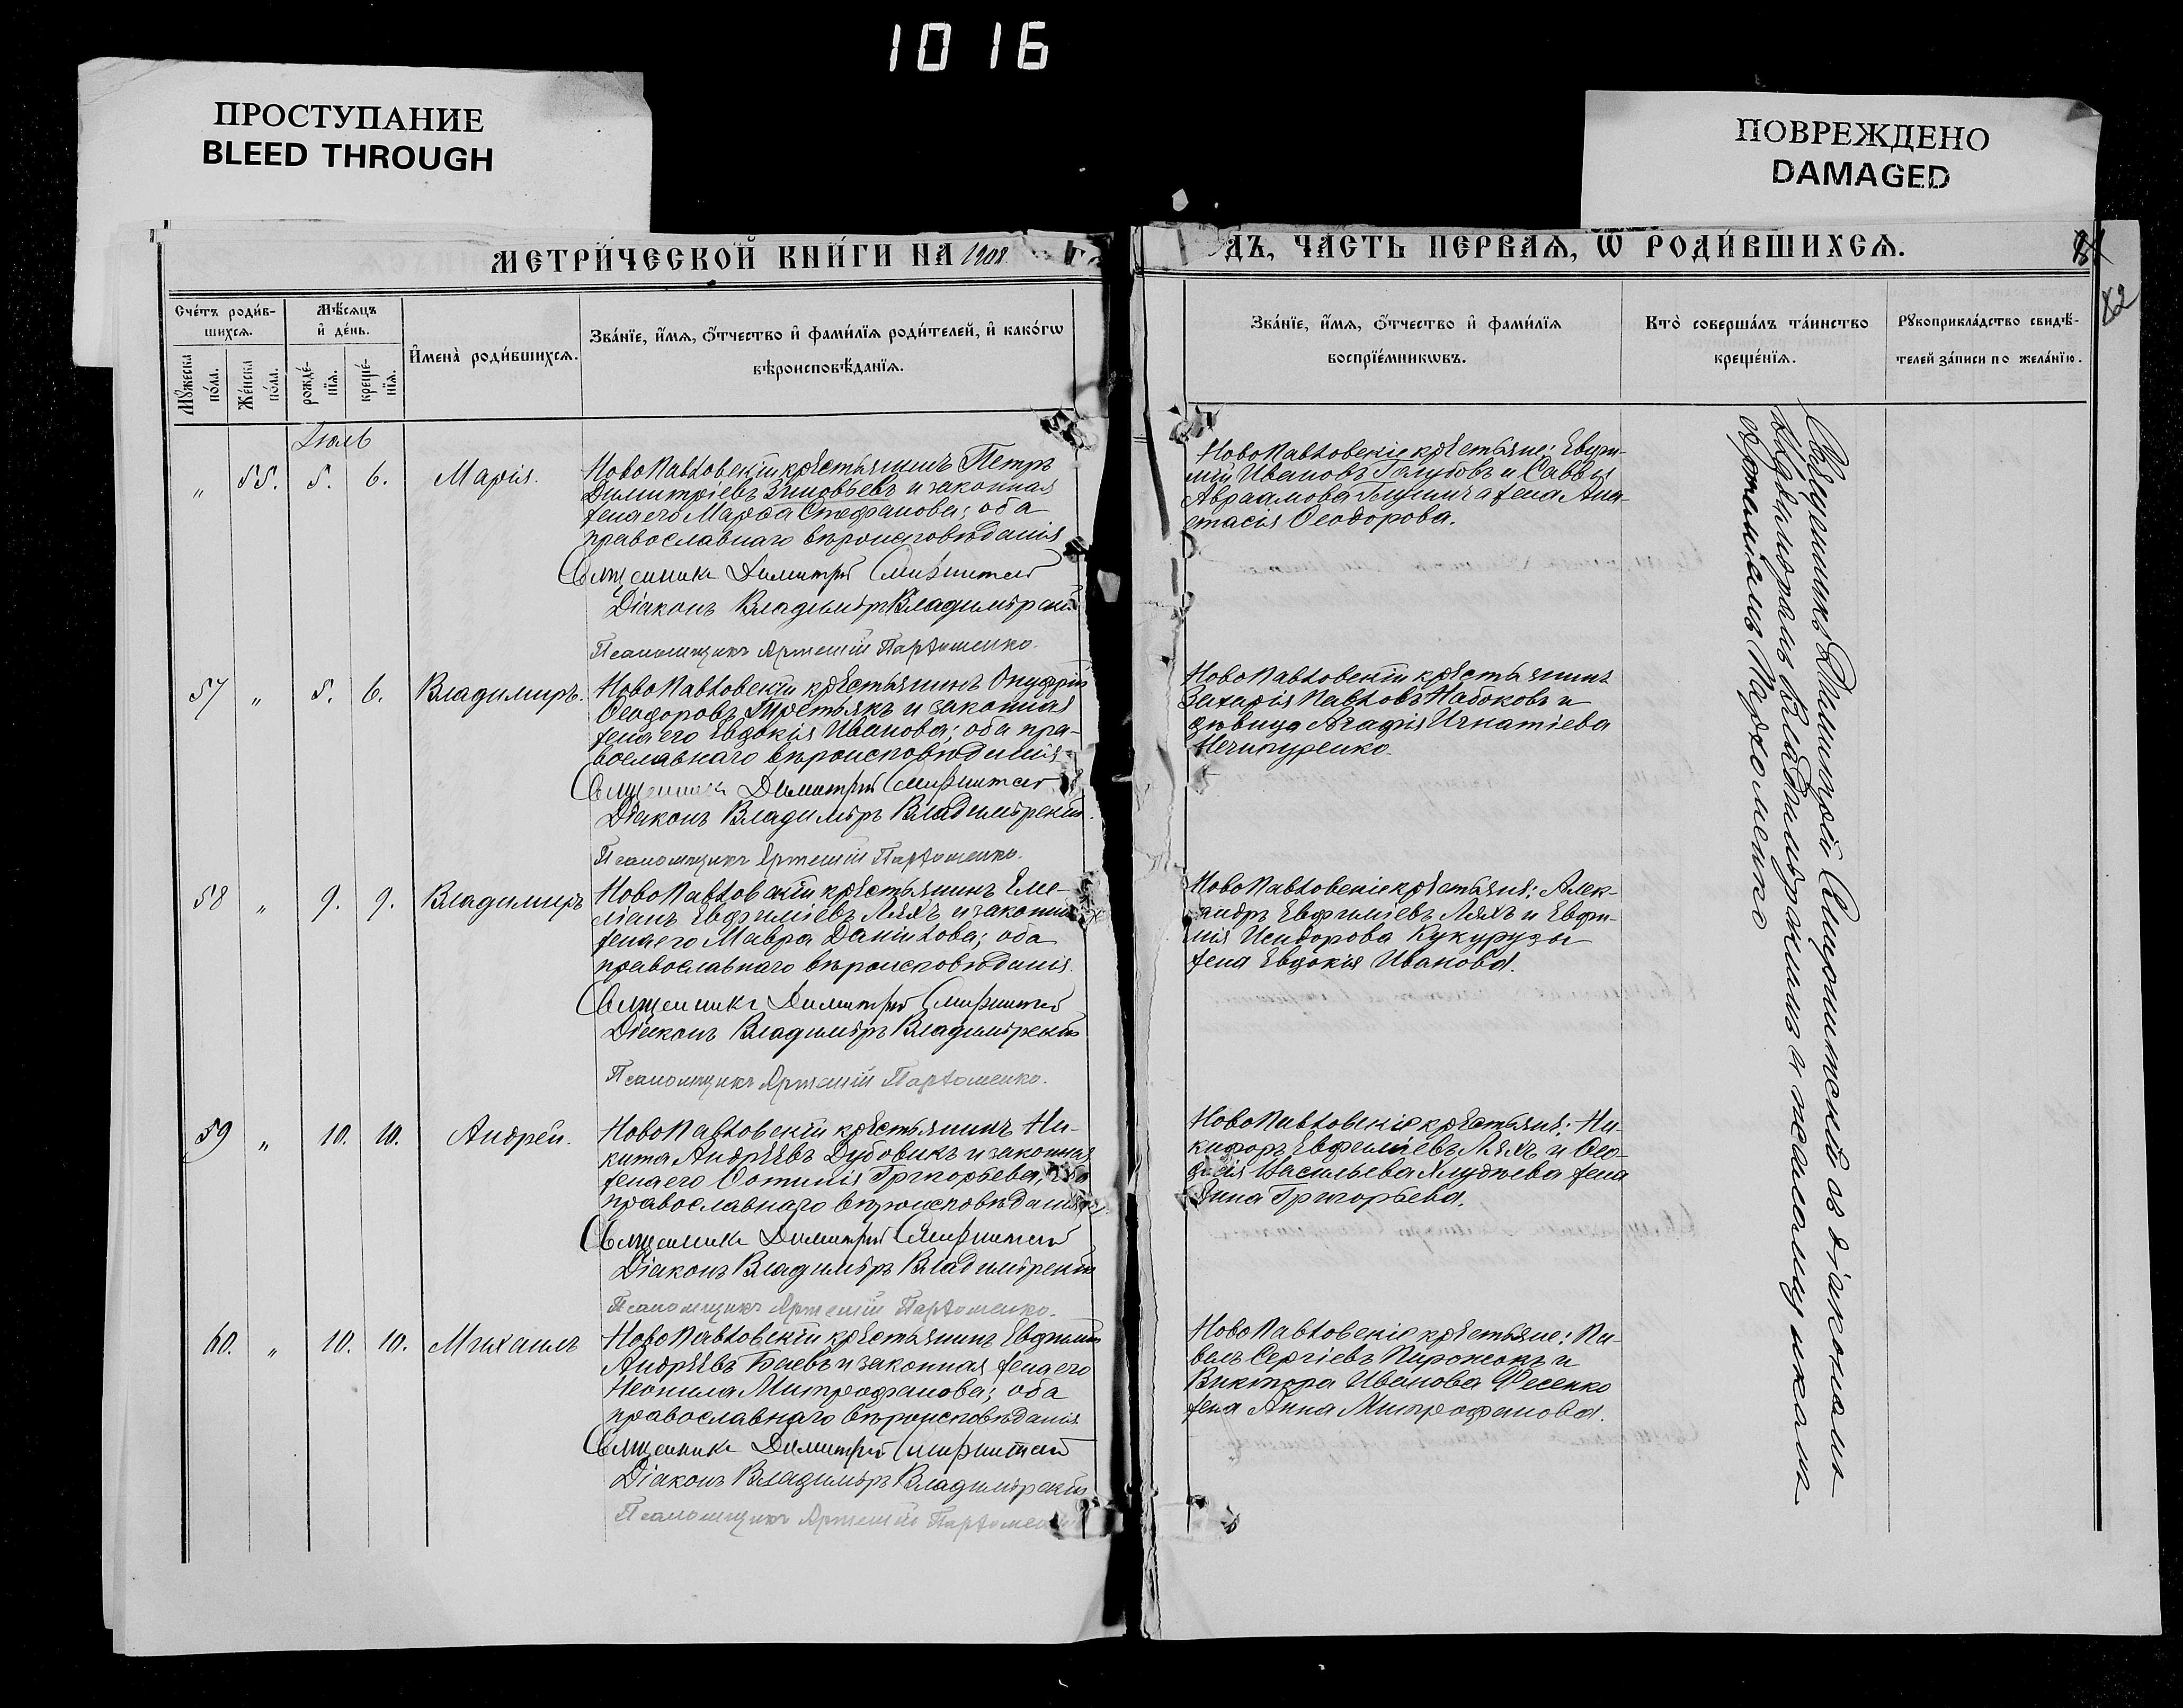 1016
ПРОСТУПАНИЕ
BLEED THROUGH
ПОВРЕЖДЕНО
DAMAGED
МЕТРИ́ЧЕСКОЙ КНИ́ГИ НА 1908
ДЪ, ЧАСТЬ ПЕРВАЯ, Ѡ РОДИ́ВШИХСЯ.
82
Сче́тъ роди́в-
шихся.
Мѣ́сяцъ
и҆ де́нь.
Мꙋжеска
по́ла.
Же́нска
по́ла.
рожде́-
нїя.
креще́-
нїя.
И҆мена̀ роди́вшихся.
Зва́нїе, и҆́мя, ѻ҆́тчество и҆ фами́лїя роди́телей, и҆ како́гѡ
вѣроисповѣ́данїя.
Зва́нїе, и҆́мя, ѻ҆́тчество и҆ фами́лїя
воспрїе́мникѡвъ.
Кто̀ соверша́лъ та́инство
креще́нїя.
Рꙋкоприкла́дство свидѣ́-
телей за́писи по жела́нїю.
Іюль
„ 55. 5. 6. Марія.
НовоПавловскій крестьянинъ Петръ
Димитріевъ Зиновьевъ и законная
жена его Марѳа Стефанова; оба
православнаго вѣроисповѣданія
Священникъ Димитрій
Діаконъ Владиміръ Владимірскій
Псаломщикъ Артемій Пархоменко.
НовоПавловскіе крестьяне: Евѳи-
мій Ивановъ и Саввы
Авраамова жена Ана-
стасія Ѳеодорова.
57 „ 5. 6. Владимиръ.
НовоПавловскій крестьянинъ Онуфрій
Ѳеодоровъ Третьякъ и законная
жена его Евдокія Иванова; оба пра-
вославнаго вѣроисповѣданія
Священникъ Димитрій
Діаконъ Владиміръ Владимірскій.
Псаломщикъ Артемій Пархоменко.
НовоПавловскій крестьянинъ
Захарія Павловъ Набоковъ и
дѣвица Агафія Игнатіева
Нечипуренко.
58 „ 9. 9. Владимиръ
НовоПавловскій крестьянинъ Еме-
ліанъ Евфиміевъ Ляхъ и законная
жена его Мавра Данилова; оба
православнаго вѣроисповѣданія.
Священникъ Димитрій
Діаконъ Владиміръ Владимірскій
Псаломщикъ Артемій Пархоменко.
НовоПавловскіе крестьяне: Алек-
сандръ Евфиміевъ Ляхъ и Евфи-
мія Исидорова Кукурузы
жена Евдокія Иванова.
59 „ 10. 10. Андрей.
НовоПавловскій крестьянинъ Ни-
кита Андреевъ Дубовикъ и законная
жена его Фотинія Григорьева; оба
православнаго вѣроисповѣданія.
Священникъ Димитрій
Діаконъ Владиміръ Владимірскій
Псаломщикъ Артемій Пархоменко.
НовоПавловскіе крестьяне: Ни-
кифоръ Евфиміевъ Ляхъ и Ѳео-
досія Васильева жена
Анна Григорьева.
60. „ 10. 10. Михаилъ
НовоПавловскій крестьянинъ Евфимій
Андреевъ Баевъ и законная жена его
Неонила Митрофанова; оба
православнаго вѣроисповѣданія
Священникъ Димитрій
Діаконъ Владиміръ Владимірскій
Псаломщикъ Артемій Пархоменко
НовоПавловскіе крестьяне: Па-
велъ Сергіевъ Пирожокъ и
Виктора Иванова Фесенко
жена Анна Митрофанова.
Священникъ Димитрій съ діакономъ
Владиміромъ Владимірскимъ и псаломщикомъ
Артеміемъ Пархоменко